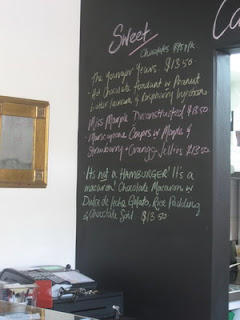 Sweet
Ca
Chocolates
The Younger Years $13.50
Hot Chocolate fondant w Peanut
butter & Raspberry Injections
Miss Marple Deconstructed $13.50
Mascarpone w Maple &
Strawberry & Orange Jellies $13.50
It's not a HAMBURGER! It's a
macaron! Chocolate Macaron w
Dulce de leche Gelato, Rice Pudding
& Chocolate Soil $13.50